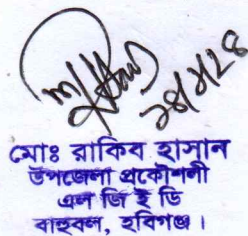 ২৪/৭/২৪
মোঃ রাকিব হাসান
উপজেলা প্রকৌশলী
এল জি ই ডি
বাহুবল, হবিগঞ্জ।